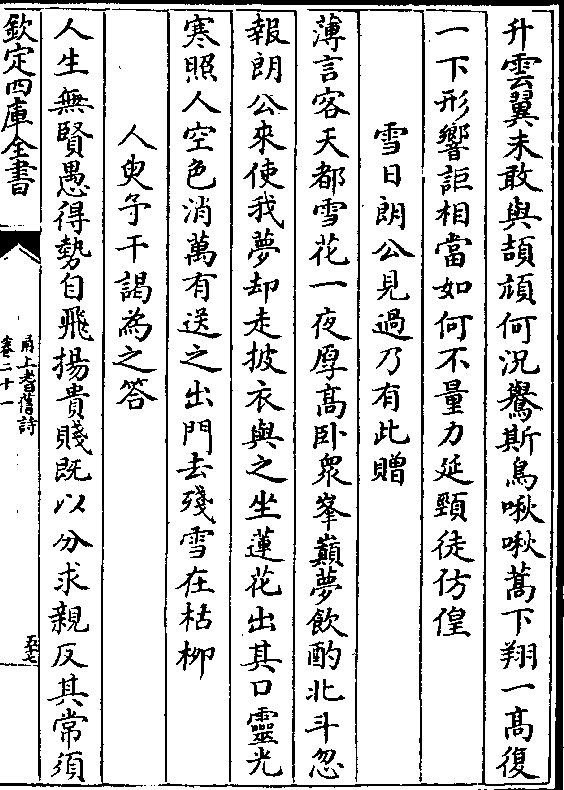 升雲翼未敢與頡頏何況鷽斯鳥啾啾蒿下翔一高復
一下形響詎相當如何不量力延頸徒仿偟
雪日朗公見過乃有此贈
薄言客天都雪花一夜厚高卧衆峯巔夢飲酌北斗忽
報朗公來使我夢却走披衣與之坐蓮花出其口靈光
寒照人空色消萬有送之出門去殘雪在枯柳
人臾予干謁為之答
人生無賢愚得勢自飛揚貴賤既以分求親反其常須
欽定四庫全書
甬上耆舊詩
卷二十一
至七